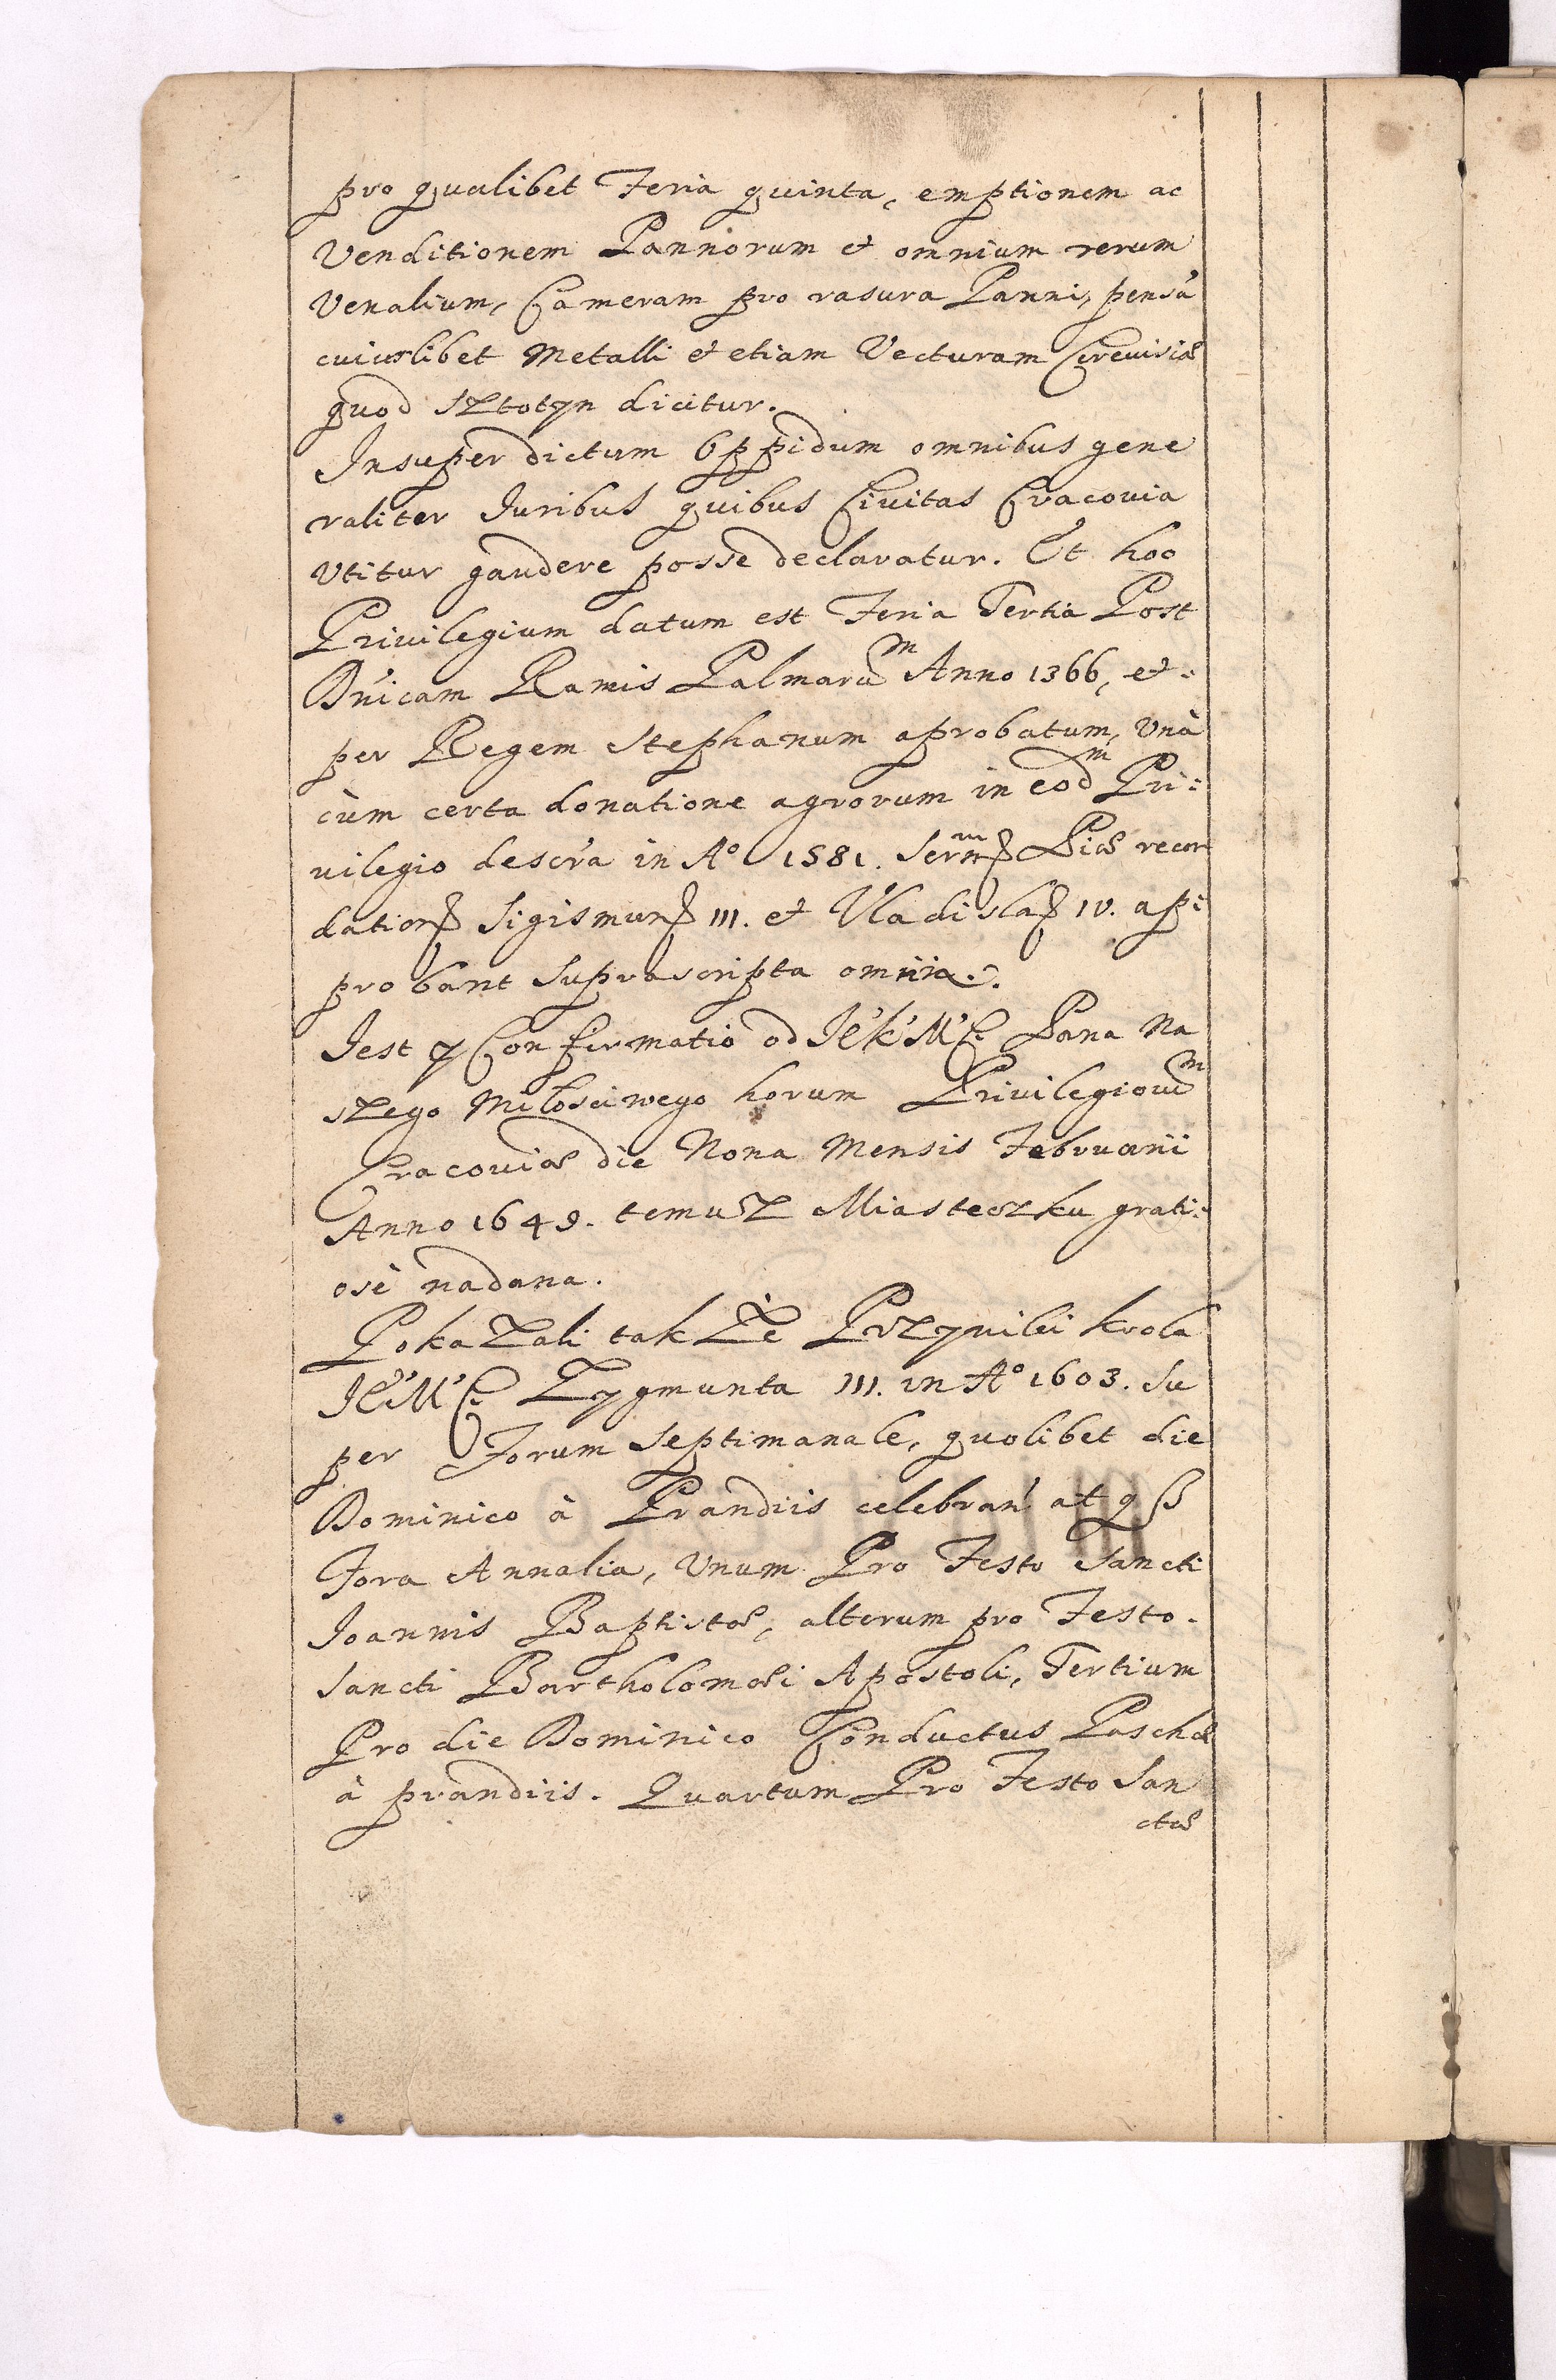 pro qualibet Feria quinta, emptionem ac
Venditionem Pannorum et omnium rerum
Venalium, Cameram pro rasura Panni, pensa
cuiuslibet Metalli et etiam Vecturam Cerevisiæ
quod sztotyn dicitur.
Insuper dictum Oppidum omnibus gene
raliter Juribus quibus Civitas Cracovia
Vtitur gaudere posse declaratur. Et hoc
Privilegium datum est Feria Tertia Post
Dn̄icam Ramis Palmaruᵐ Anno 1366, et
per Regem Stephanum aprobatum, Vnà
cùm certa donatione agrorum in eodᵐ Pri:
uilegio descr̄a in Aº 1581. Piæ recor
Sigismun III. et Vladisla IV. ap:
probant supra scripta omnia.
Jest y Confirmatio od JE'K'M'C: Pana Na
szego Miłosciwego horum Privilegioruᵐ
Cracoviæ die Nona Mensis Februarii
Anno 1649. temusz Miasteczku grati:
osè nadana.
Pokazali także Przywilei krola
JE'M'C: Zygmunta III. in Aº 1603. Su
per Forum Septimanale, quolibet die
Dominico à Prandiis celebran̄ at qß
Fora Annalia, Vnum Pro Festo Sancti
Joannis Baptistæ, alterum pro Festo
Sancti Bartholomæi Apostoli, Tertium
Pro die Dominico Conductus Paschæ
à prandiis. Quartum Pro Festo San
ctæ